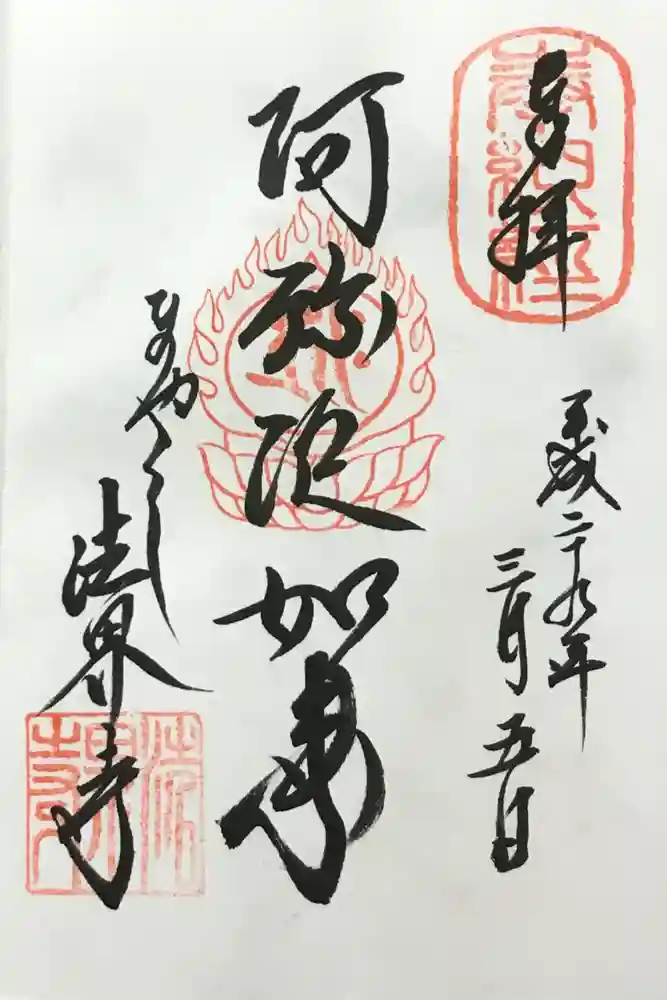 奉拝
奉納経
平成二十九年
三月五日
阿弥陀如来
ひのやくし
法界寺
法界寺